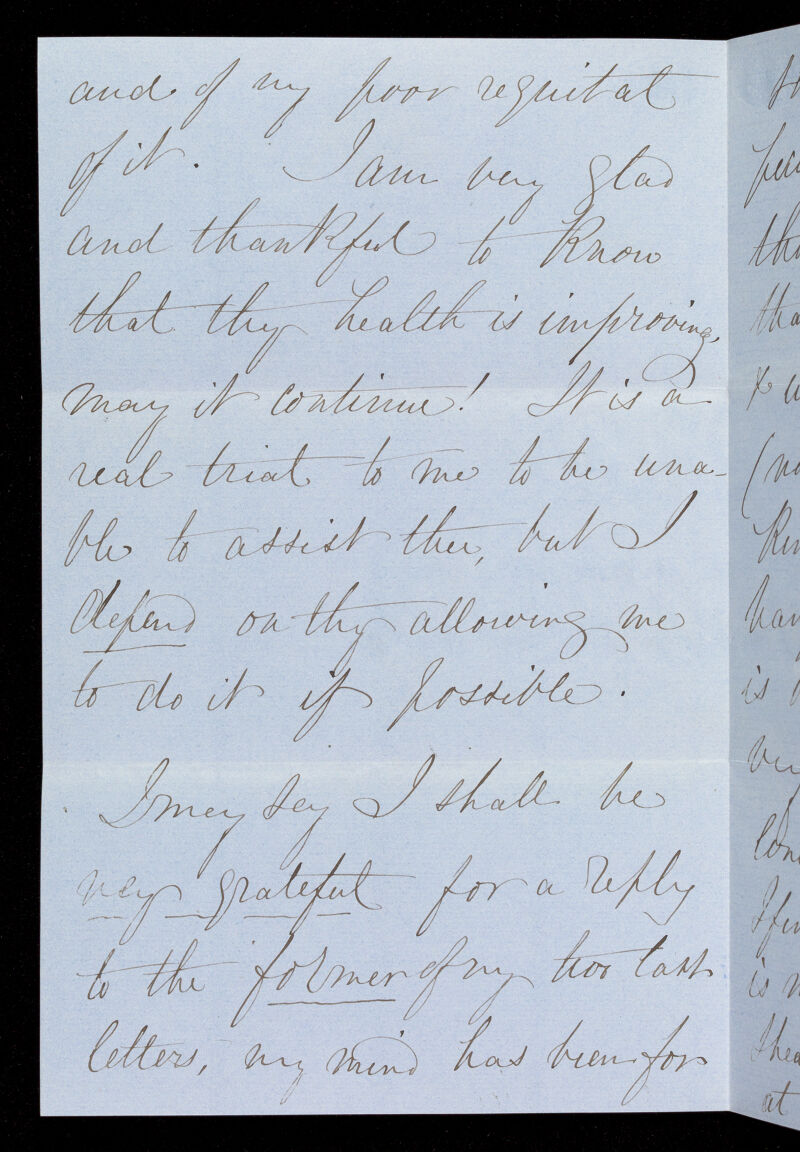 and of my poor requital
of it. I am very glad
and thankful to know
that thy health is improving,
may it continue! It is a
real trial to me to be una-
ble to assist thee, but I
depend on thy allowing me
to do it if possible.
I may say I shall be
very grateful for a reply
to the former of my two last
letters, my mind has been for